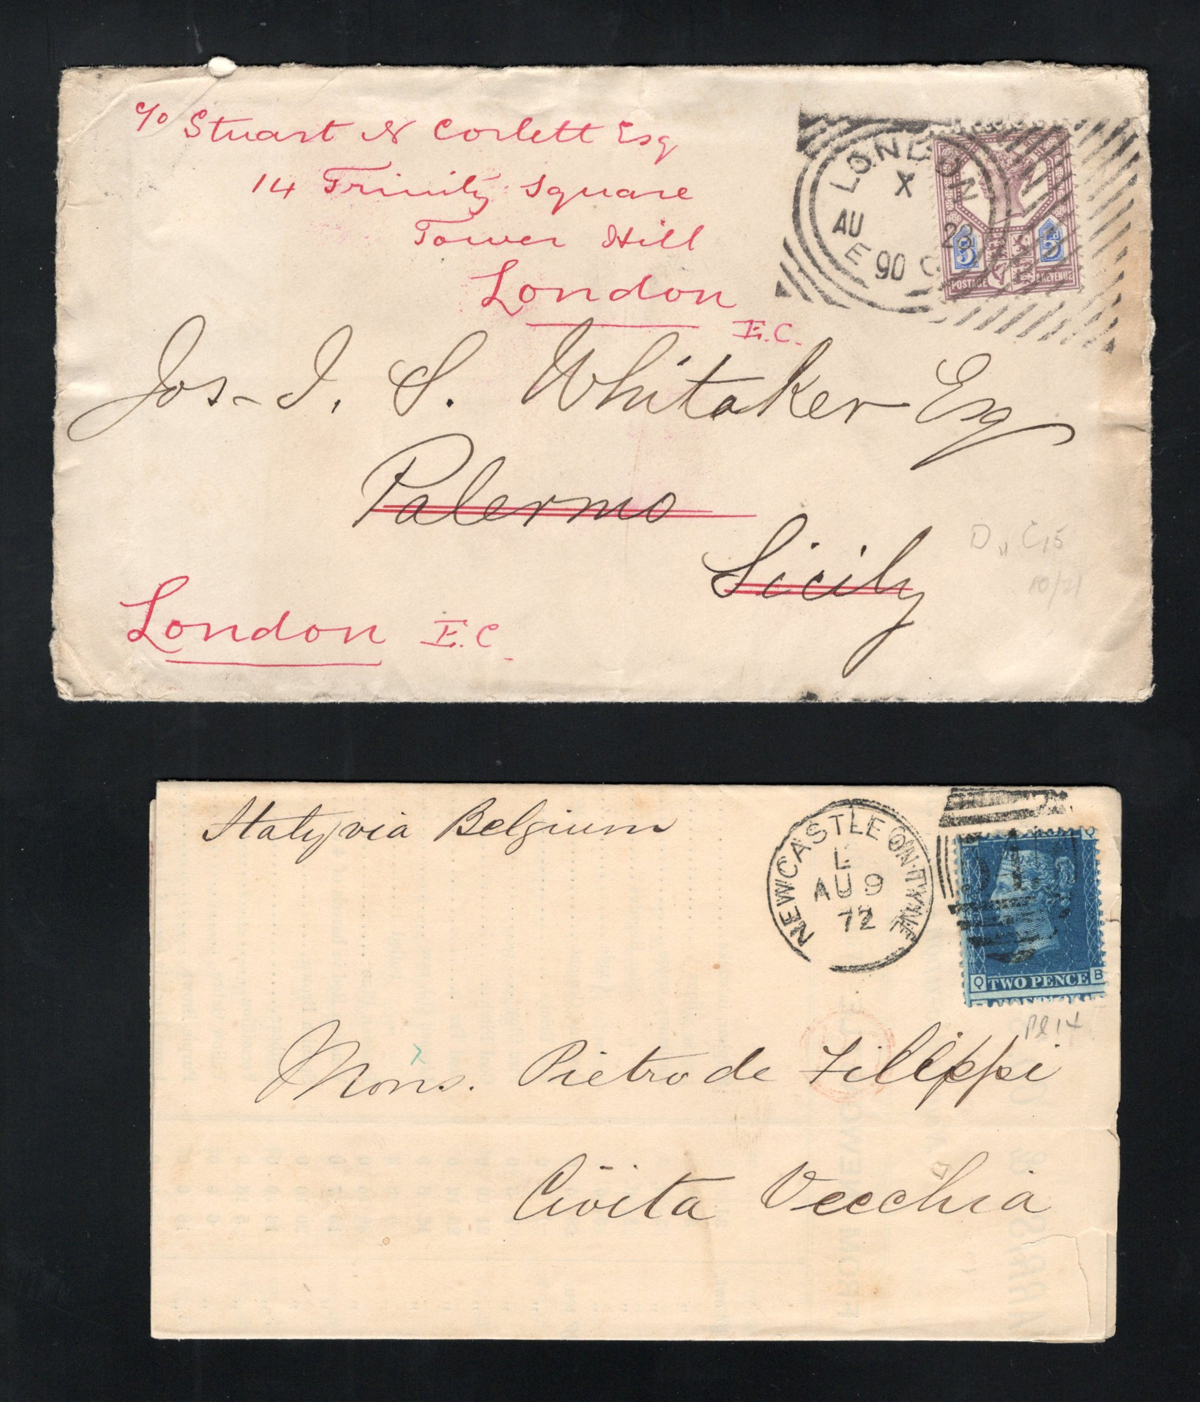 c/o Stuart N Corlett Esq
14 Trinity Square
Tower Hill
London
E.C.
LONDON
X
AU 28
90
E C
5 5
POSTAGE REVENUE
Jos. I. S. Whitaker Esq
Palermo
Sicily
D,, C,5
10/21
London E.C.
Italy via Belgium
NEWCASTLE ON TYNE
L
AU 9
72
Q
Q TWO PENCE B
Pl 14
Mons. Pietro de Filippi
Civita Vecchia